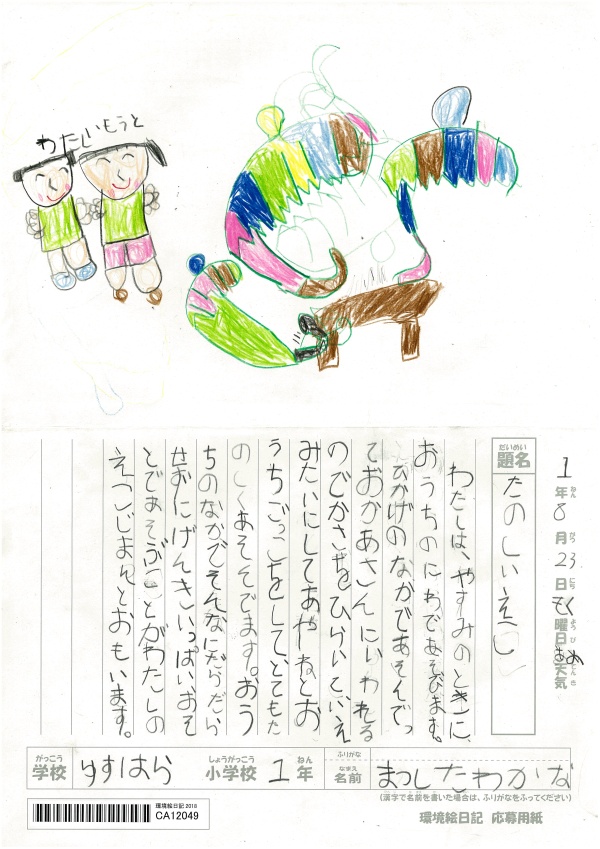 わたし いもうと
1年8月23日もく曜日あめ天気
ねん がつ にち ようび てんき
だいめい
題名
たのしいえこ
わたしは、やすみのときに、
おうちのにわであそびます。
ひかげのなかであそんでっ
ておかあさんにいわれる
のでかさをひらいていえ
みたいにしてあやねとお
うちごっこをしてとてもた
のしくあそんでます。おう
ちのなかでそんなにだらだら
せずにげんきいっぱいおそ
とであそぶことがわたしの
えこじまんとおもいます。
がっこう しょうがっこう ねん ふりがな なまえ
学校 ゆすはら 小学校 1年 名前 まつしたわかな
(漢字で名前を書いた場合は、ふりがなをふってください)
環境絵日記 2018
CA12049
環境絵日記 応募用紙